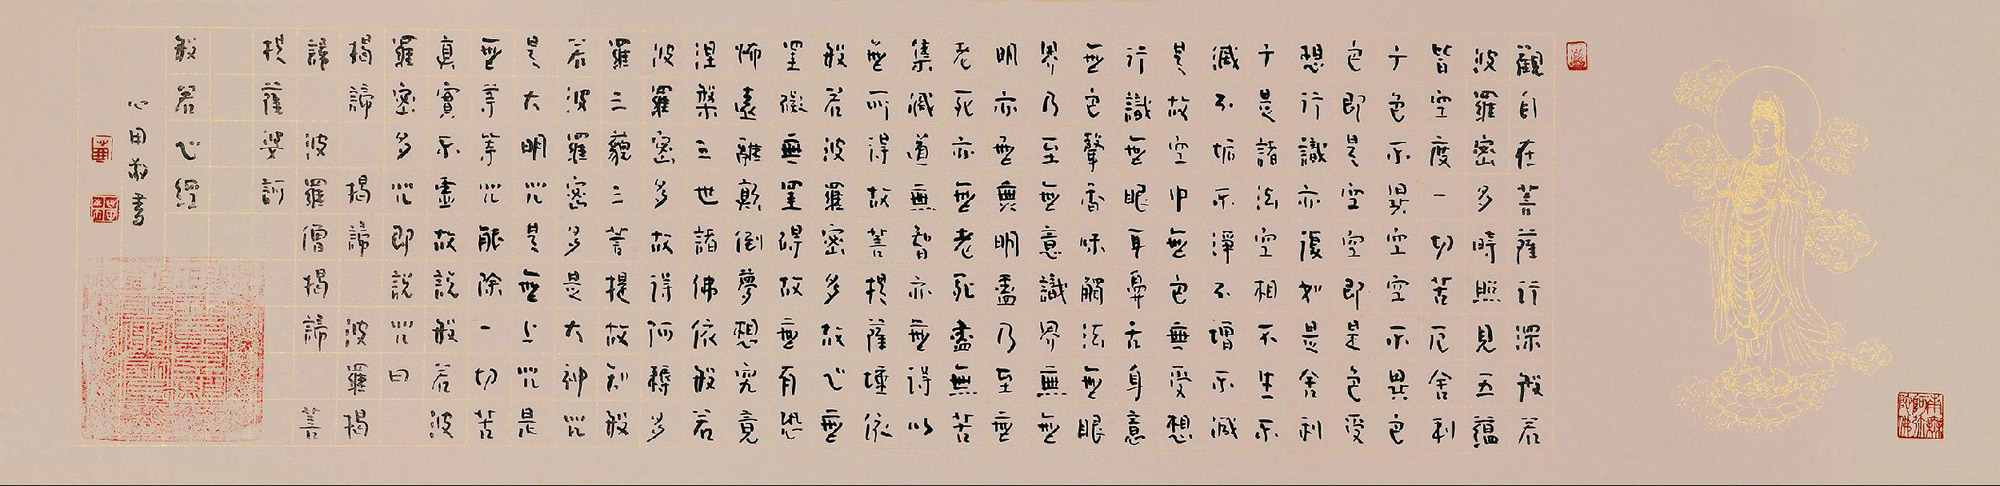 南無阿彌陀佛
觀自在菩薩行深般若
波羅密多時照見五蘊
皆空度一切苦厄舍利
子色不異空空不異色
色即是空空即是色受
想行識亦復如是舍利
子是諸法空相不生不
滅不垢不淨不增不減
是故空中無色無受想
行識無眼耳鼻舌身意
無色聲香味觸法無眼
界乃至無意識界無無
明亦無無明盡乃至無
老死亦無老死盡無苦
集滅道無智亦無得以
無所得故菩提薩埵依
般若波羅密多故心無
罣礙無罣礙故無有恐
怖遠離顛倒夢想究竟
涅槃三世諸佛依般若
波羅密多故得阿耨多
羅三藐三菩提故知般
若波羅密多是大神咒
是大明咒是無上咒是
無等等咒能除一切苦
真實不虛故說般若波
羅密多咒即說咒曰
揭諦 揭諦 波羅揭
諦 波羅僧揭諦 菩
提薩婆訶
般若心經
心田 書